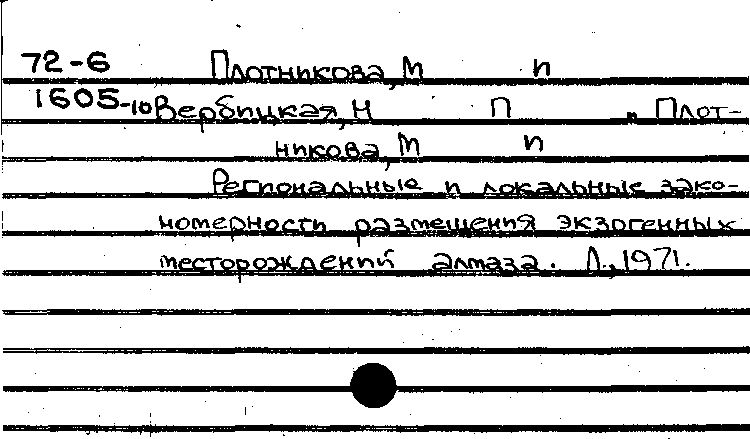 72-6 Плотникова, М П
1605-10 Вербицкая, Н П „ Плот-
никова, М П
Региональные и локальные зако-
номерности размещения экзогенных
месторождений алмаза. Л., 1971.